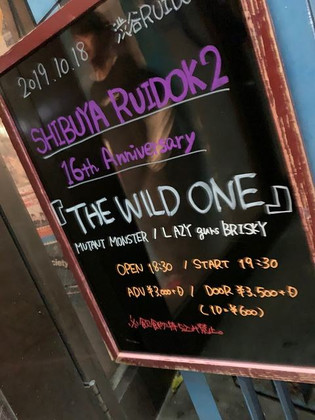 2019.10.18 渋谷RUIDO
SHIBUYA RUIDOK2
16th Anniversary
『THE WILD ONE』
MUTANT MONSTER / LAZY guns BRISKY
OPEN 18:30 / START 19:30
ADV ¥3,000+D / DOOR ¥3,500+D
(1D=¥600)
※飲食物持ち込み禁止。